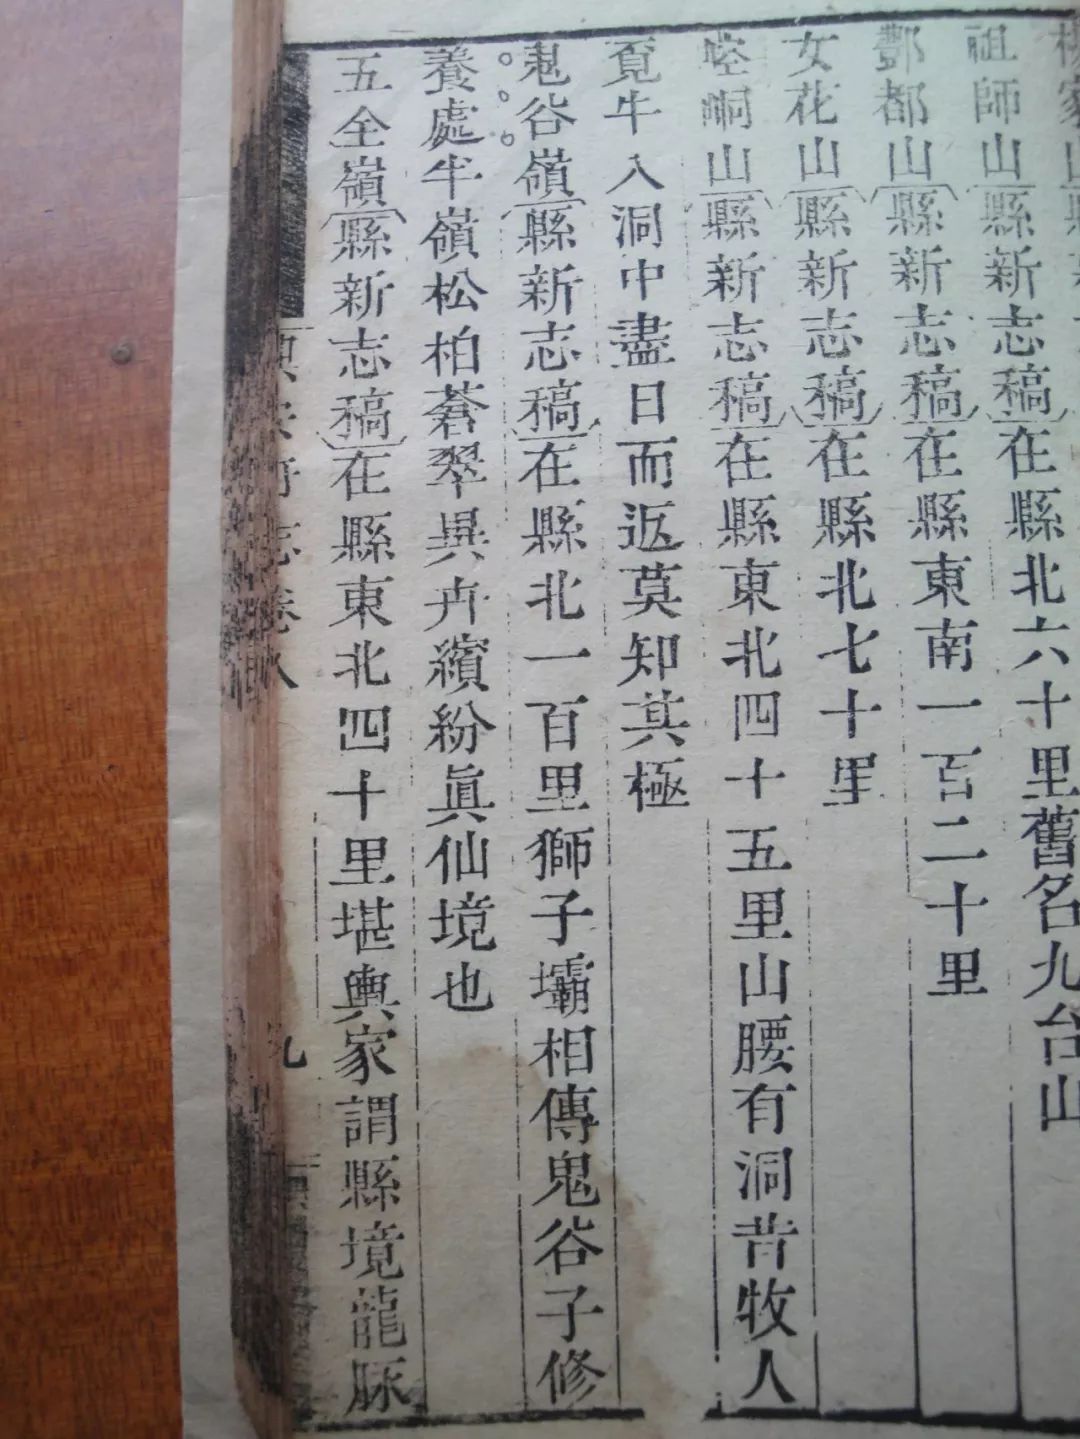 楊家山縣
祖師山縣新志稿在縣北六十里舊名九台山
酆都山縣新志稿在縣東南一百二十里
女花山縣新志稿在縣北七十里
崆峒山縣新志稿在縣東北四十五里山腰有洞昔牧人
覓牛入洞中盡日而返莫知其極
鬼谷嶺縣新志稿在縣北一百里獅子壩相傳鬼谷子修
養處半嶺松柏蒼翠異卉繽紛眞仙境也
五全嶺縣新志稿在縣東北四十里堪輿家謂縣境龍脉
志卷八
九